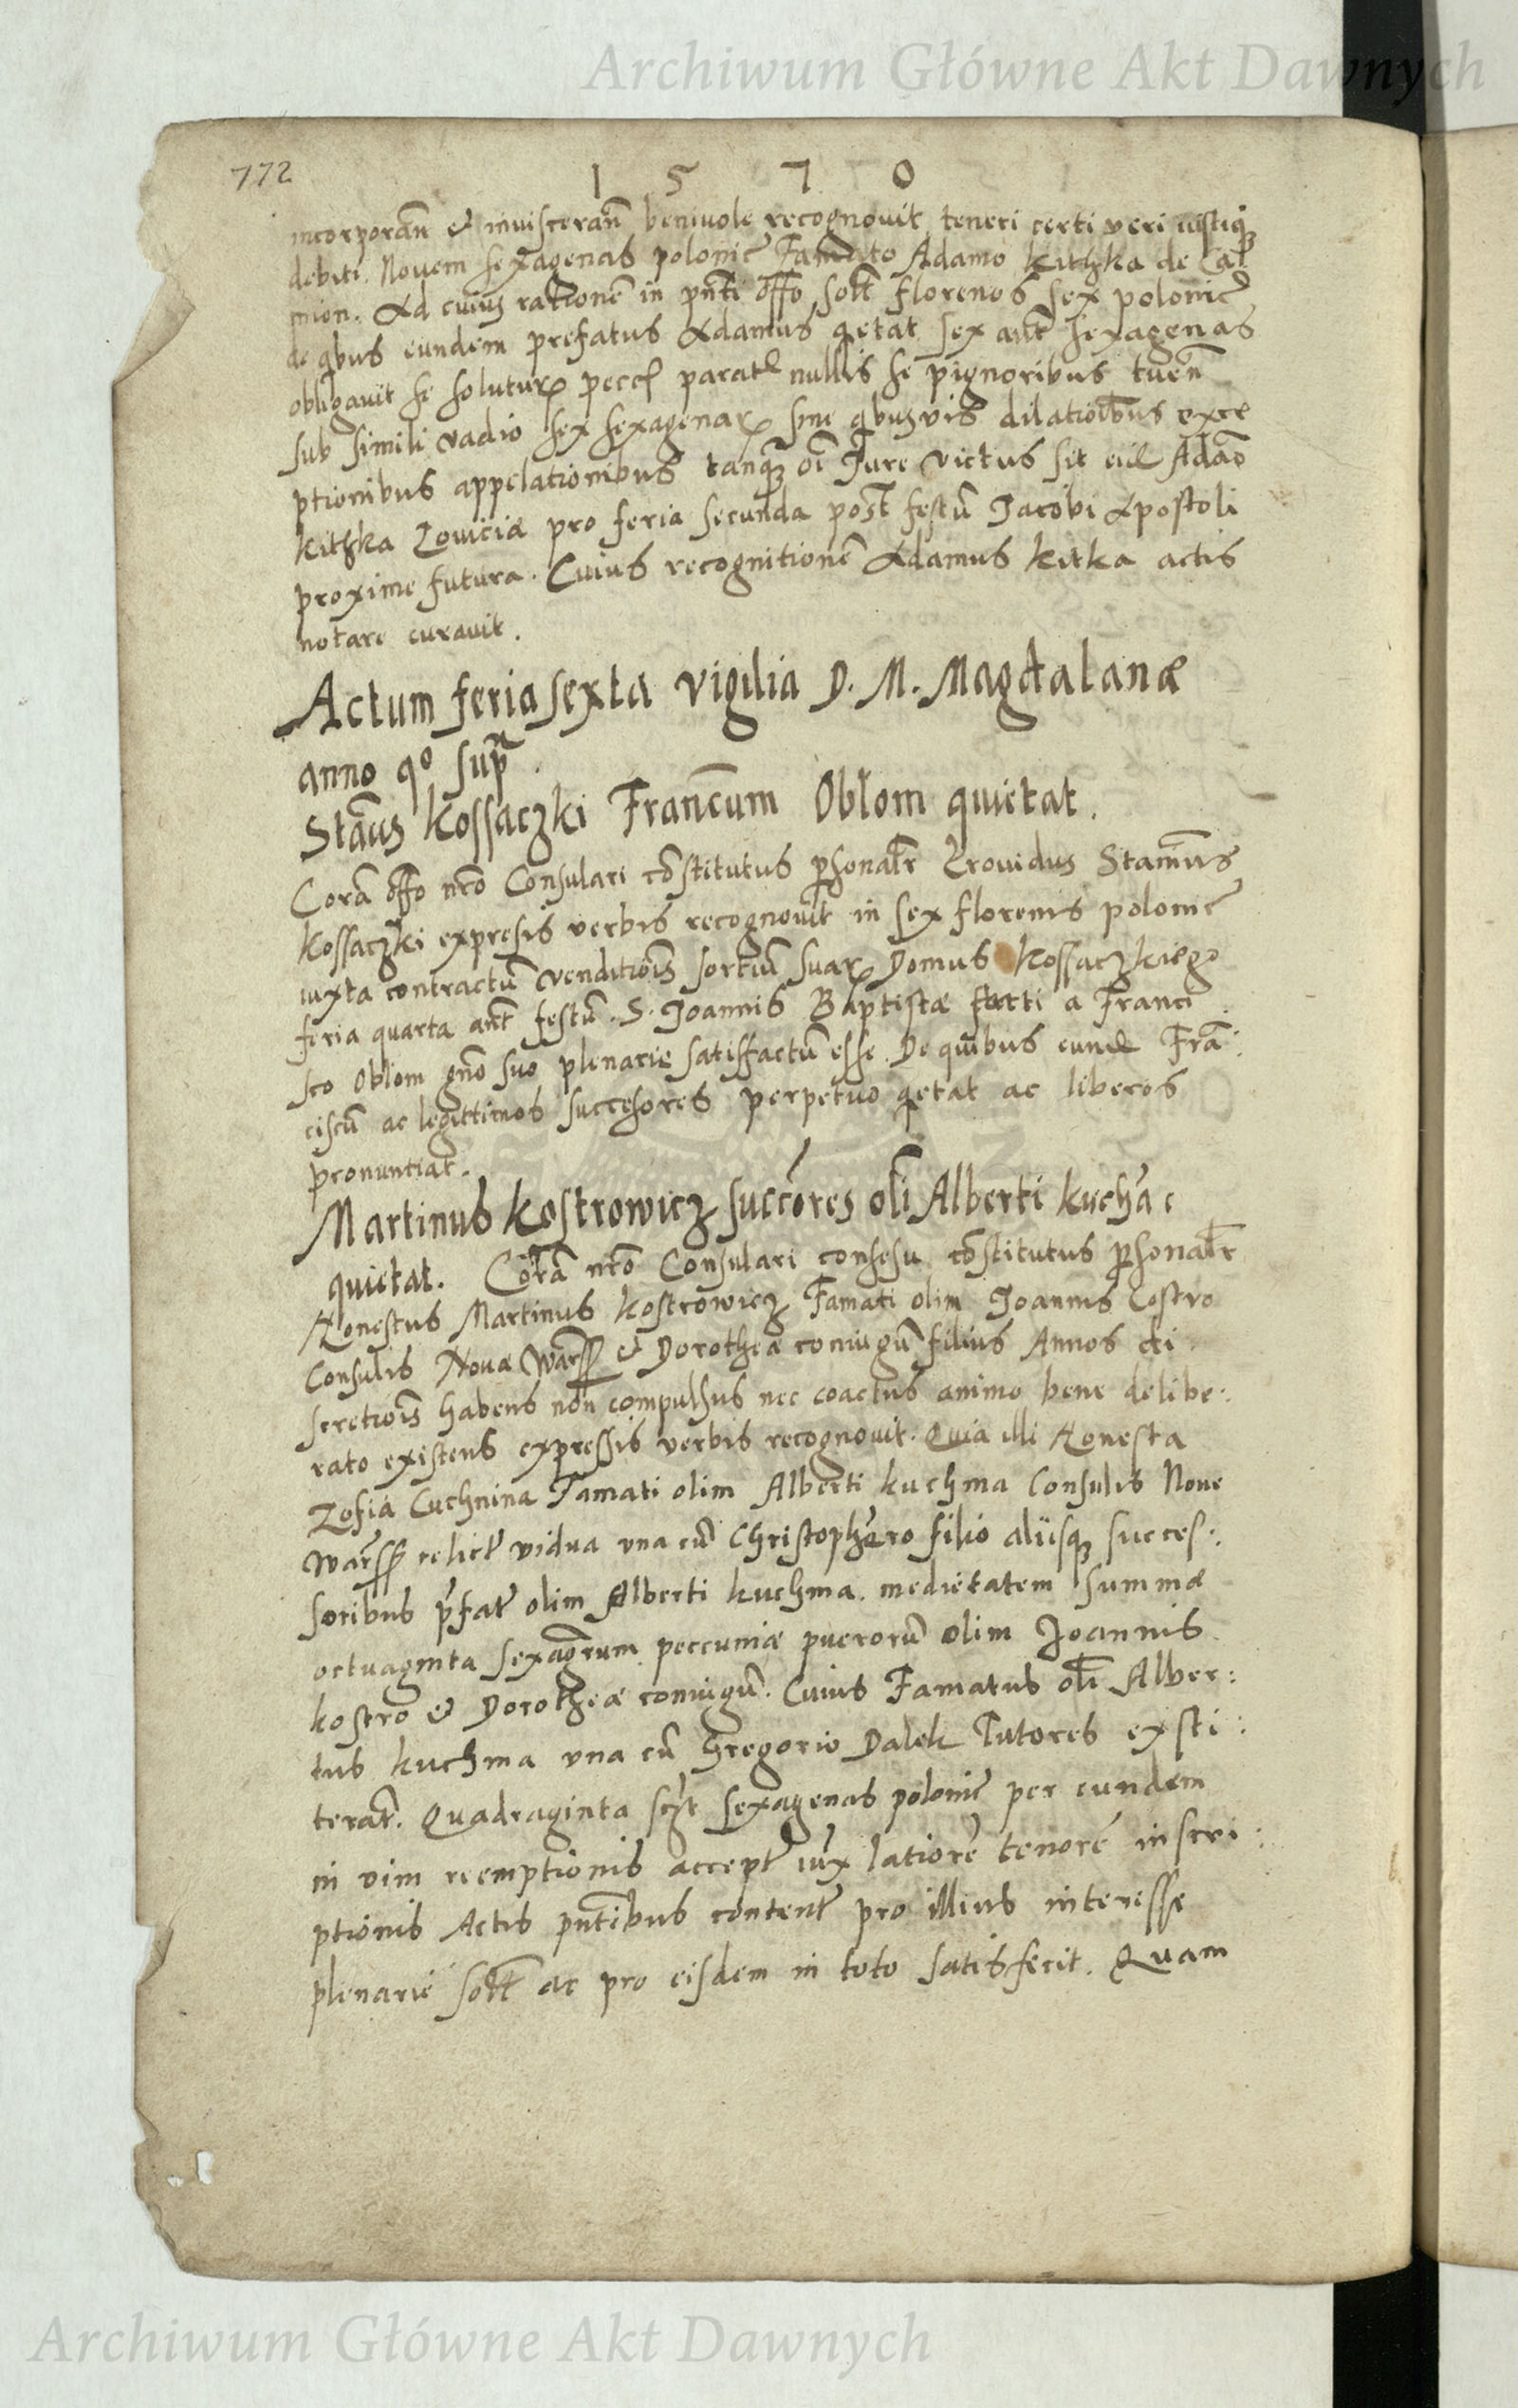 Archiwum Główne Akt Dawnych
772
1 5 7 0
incorporan̄ & inviscerañ benivole recognovit teneri certi veri iustiqȝ
debiti. Novem sexagenas polonic̄ Famato Adamo Kithka de
mion. Ad cuius rationē in pn̄ti offō solt florenos sex polonic̄
de qbus eundem prefatus Adamus qetat sex aūt sexagenas
obligavit se soluturꝝ pecc parat nullis se pignoribus tuen̄
sub simili vadio sex sexagenaꝝ sine qbusvis dilatioībus exce
ptionibus appelationibus tanqȝ oī Iure victus sit eid Adāo
Kithka Loviciæ pro feria secunda post festū Iacobi Apostoli
proxime futura. Cuius recognitionē Adamus Kitka actis
notare curavit.
Actum feria sexta vigilia D. M. Magdalanæ
anno qo supr̄.
Stāus Kossaczki Franc̄um Oblom quietat.
Corā offo nr̄o Consulari cōstitutus psonalr Providus Stanīus
Kossaczki expresis verbis recognovit in sex florenis polonic̄
iuxta contractū venditiōis sortiū suaꝝ Domus Kossaczkiego
feria quarta ant̄ festū. S. Ioannis Baptistæ facti a Franci
sco Oblom gn̄o suo plenarie satisfactū esse. De quibus eund Frā:
ciscū ac legittimos succesores perpetuo qetat ac liberos
pronuntiat.
Martinus Kostrowicz succōres olī Alberti Kuch̄a
quietat. Corā nr̄o Consulari consesu cōstitutus psonalr
Honestus Martinus Kostrowicz Famati olim Ioannis Costro
Consulis Novæ Warss & Dorotheæ coniugū filius Annos di
scretiōis habens non compulsus nec coactus animo bene delibe:
rato existens expressis verbis recognovit. Quia illi Honesta
Zofia Cuchnina Famati olim Alberti Kuchma Consulis Nove
Warss relict̄ vidua una cū Christophero filio aliisqȝ succes:
soribus pr̄fat̄ olim Alberti Kuchma. medietatem summæ
octuaginta sexaḡrum peccuniæ puerorū olim Joannis
Kostro & Dorotheæ coniugū. Cuius Famatus olī Alber:
tus Kuchma una cū Gregorio Dalek Tutores exsti:
terāt. Quadraginta sc̄zt sexagenas polonic̄ per eundem
in vim reemptionis accept̄ iux̄ latiorē tenorē inscri:
ptionis Actis pn̄tibus content̄ pro illius interesse
plenarie solt ac pro eisdem in toto satisfecit. Quam
Archiwum Główne Akt Dawnych